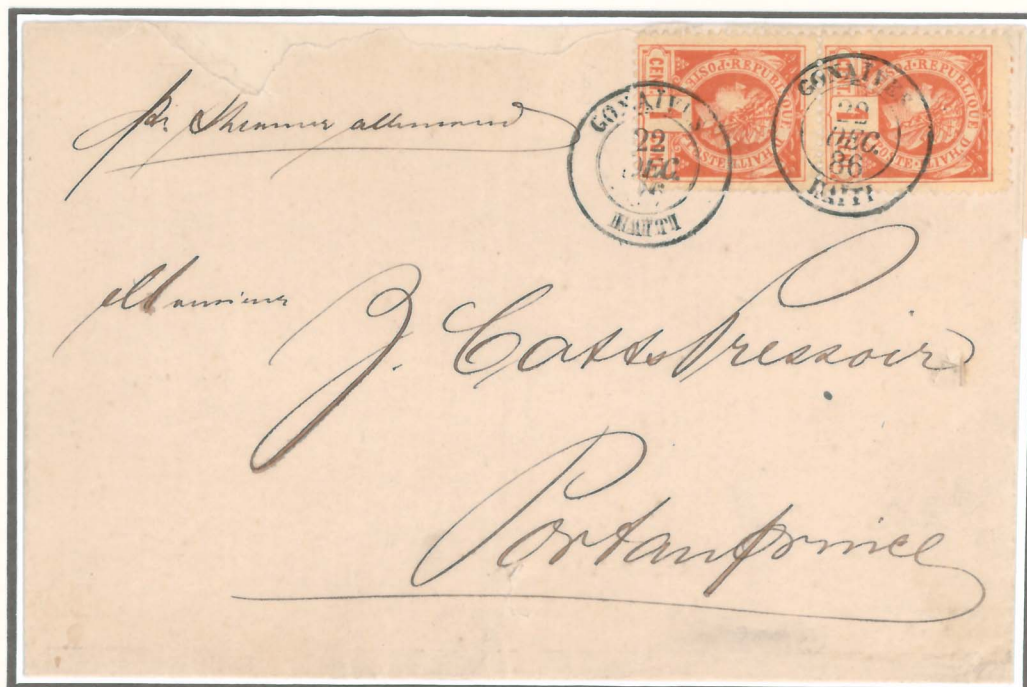 pr Steamer allemand
GONAIVES
22
DEC.
HAITI
GONAIVES
22
DEC.
86
HAITI
CENT
REPUBLIQUE D'HAITI
POSTE
Monsieur
J. Catts Pressoir
Portauprince